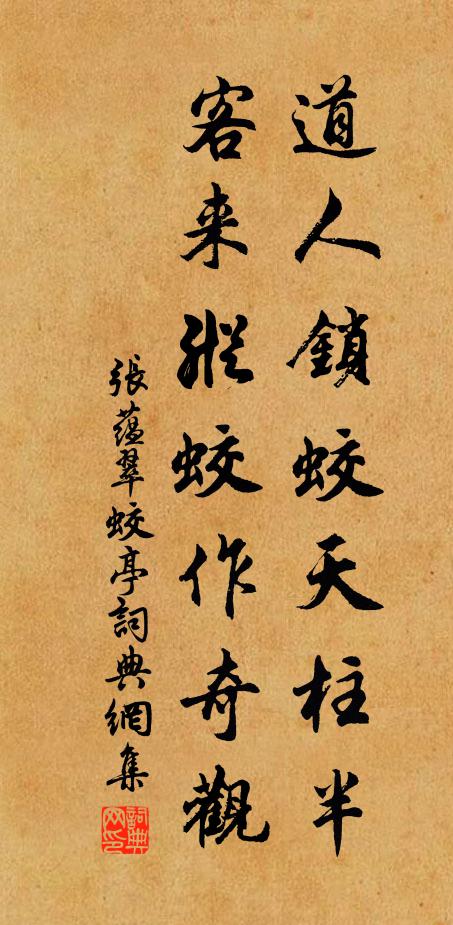 道人鎖蛟天柱半
客来縱蛟作奇觀
張蘊翠蛟亭詞典網集
詞典网印